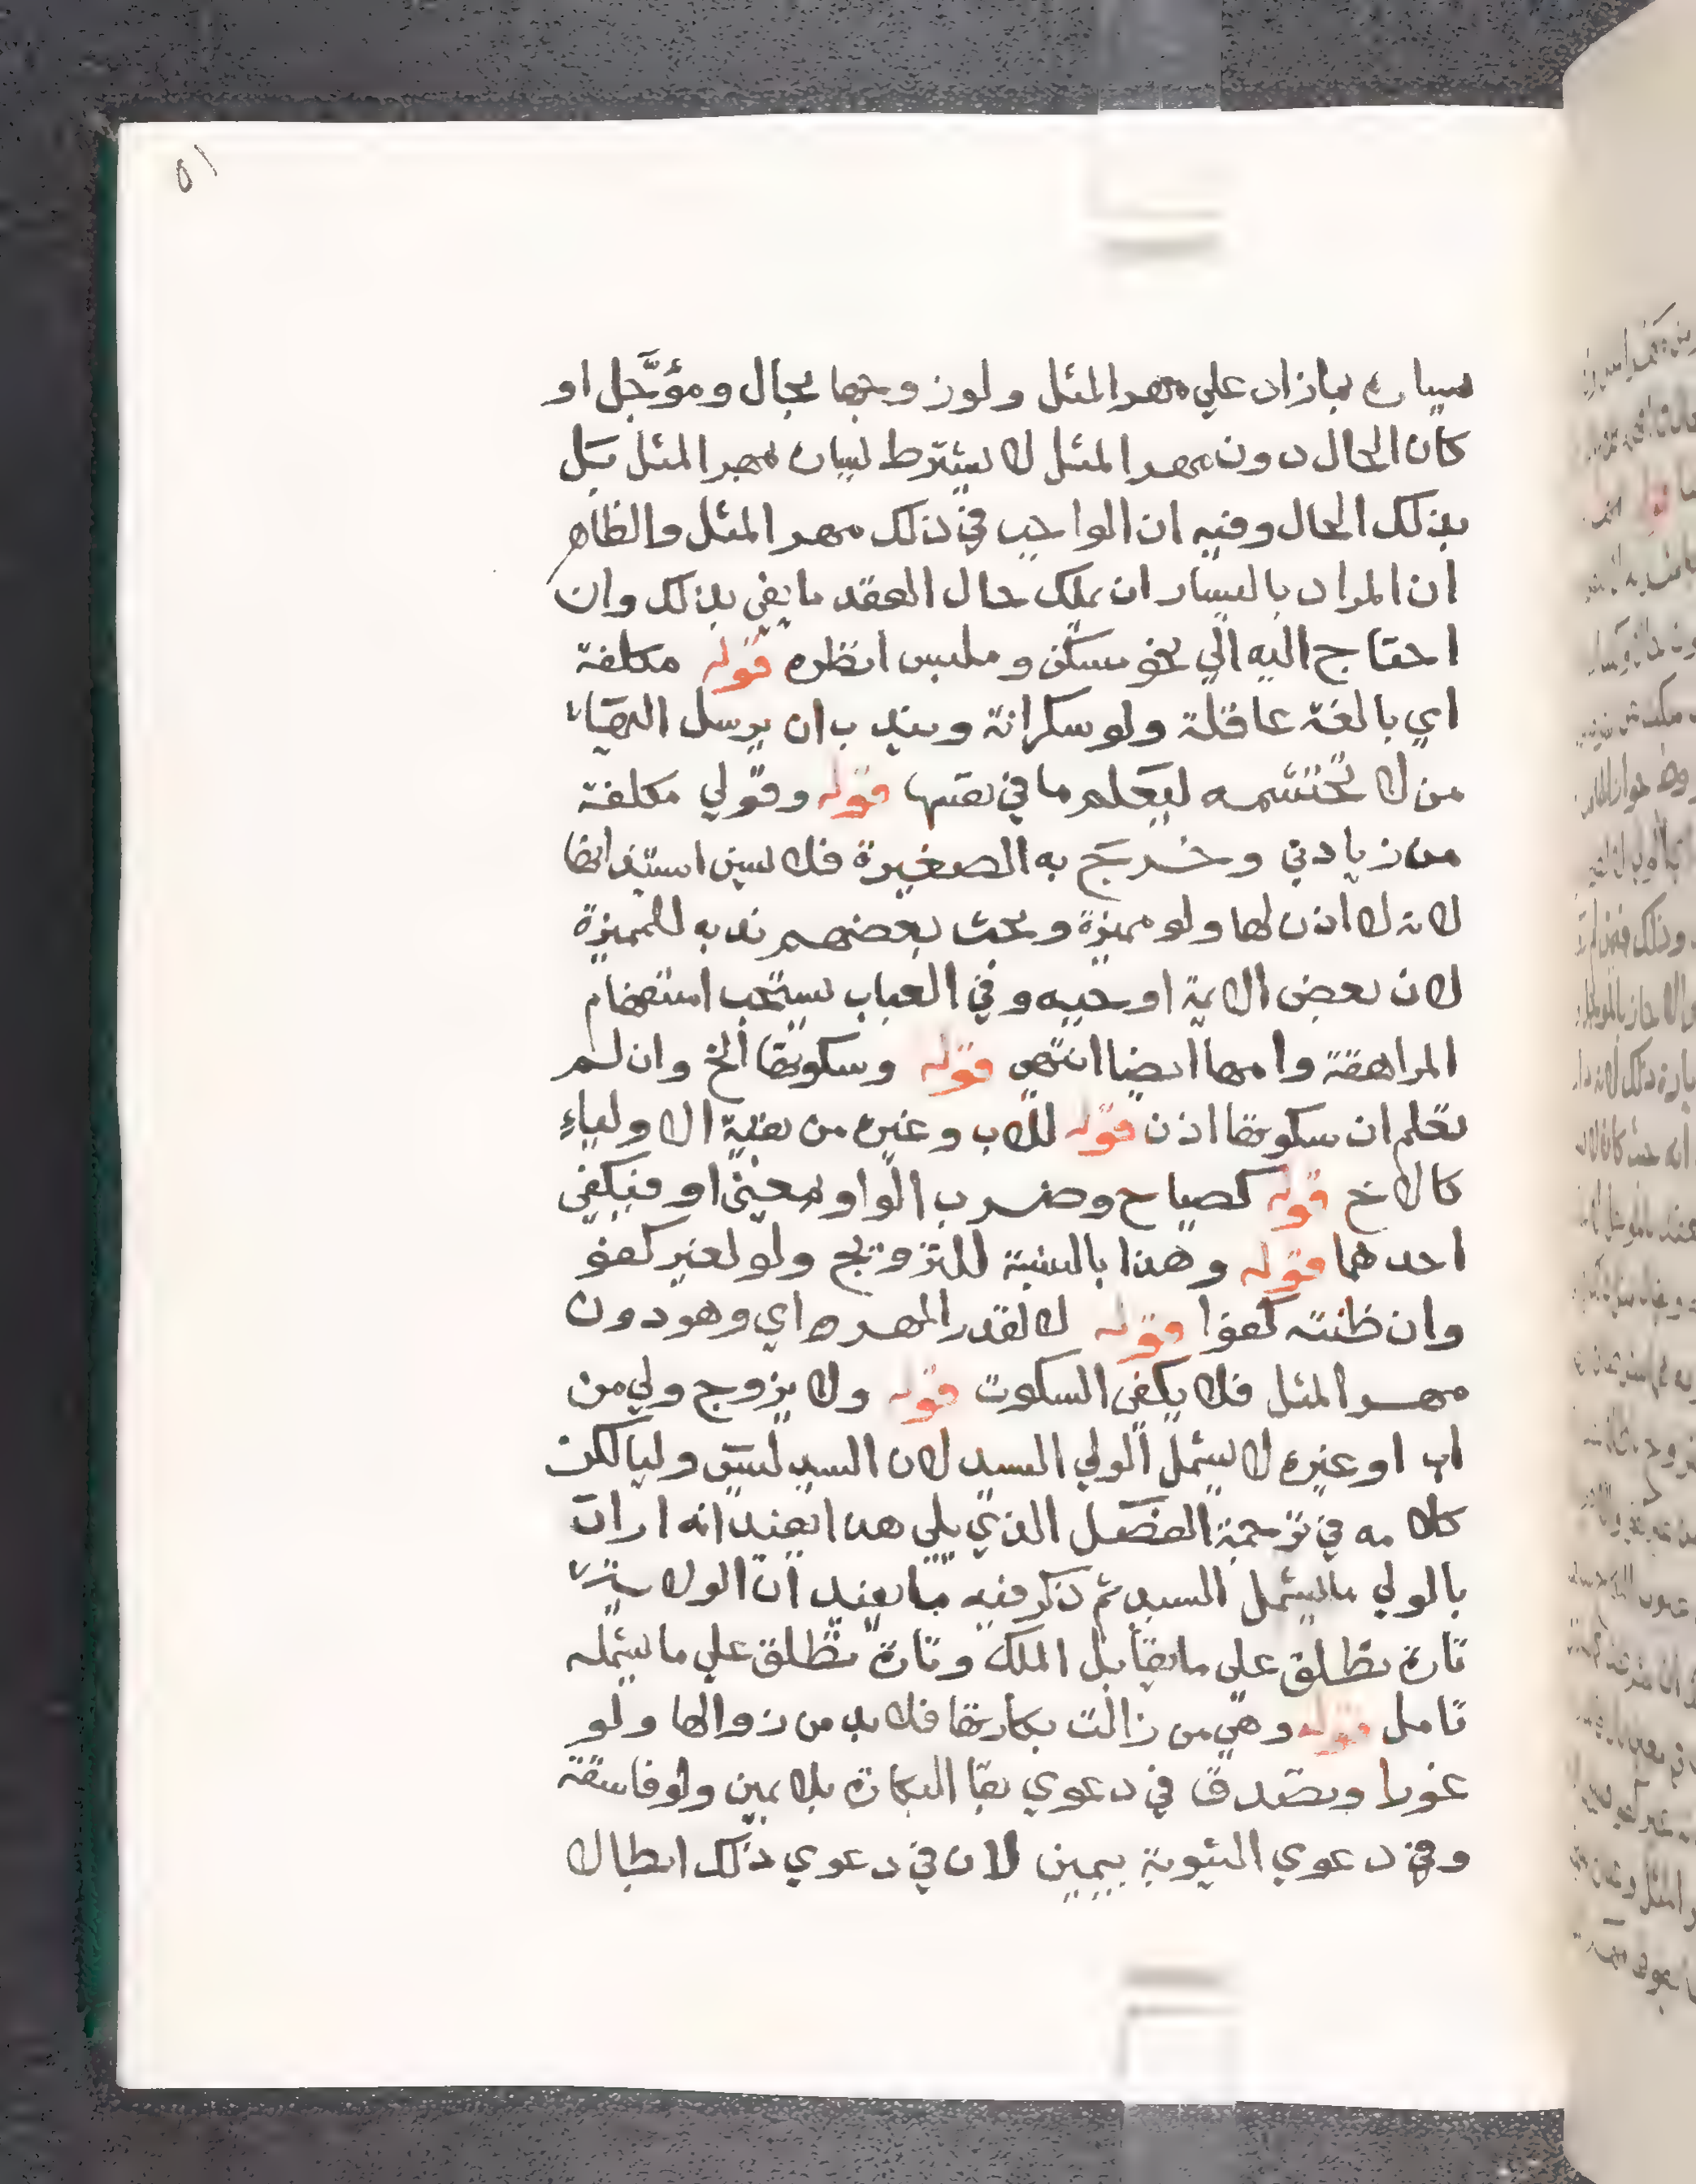 ٥١
يساره بمازاد علي مهر المثل ولو زوجها بحال ومؤجل او
كان الحال دون مهر المثل لا يشترط يساره بمهر المثل بل
بذلك الحال وفيه ان الواجب في ذلك مهر المثل والظاهر
ان المراد باليسار ان يملك حال العقد ما يفي بذلك وان
احتاج اليه الي نحو مسكن وملبس انظره قوله مكلفة
اي بالغة عاقلة ولو سكرانة ويندب ان يرسل اليها
من لا تحتشمه ليعلم ما في نفسها قوله وقولي مكلفة
من زيادتي وخرج به الصغيرة فلا يسن استيذانها
لانه لا اذن لها ولو مميزة وبحث بعضهم ندبه للمميزة
لان بعض الايمة اوجبه وفي العباب يستحب استفهام
المراهقة وامها ايضا انتهي قوله وسكوتها الخ وان لم
تعلم ان سكوتها اذن قوله للاب وغيره من بقية الاولياء
كالاخ قوله كصياح وضرب الواو بمعني او فيكفي
احدهما قوله وهذا بالنسبة للتزويج ولو لغير كفو
وان ظنته كفوا قوله لا لقدر المهر ه اي وهو دون
مهر المثل فلا يكفي السكوت قوله ولا يزوج ولي من
اب او غيره لا يشمل الولي السيد لان السيد ليس وليا لكن
كلامه في ترجمة الفصل الذي يلي هذا يفيد انه اراد
بالولي ما يشمل السيد ثم ذكر فيه ما يفيد ان الولاية
تارة تطلق علي ما يقابل الملك وتارة تطلق علي ما يشمله
تامل قوله وهي من زالت بكارتها فلا بد من زوالها ولو
غورا وتصدق في دعوي بقا البكارة بلا يمين ولو فاسقة
وفي دعوي الثيوبة بيمين لان في دعوي ذلك ابطال